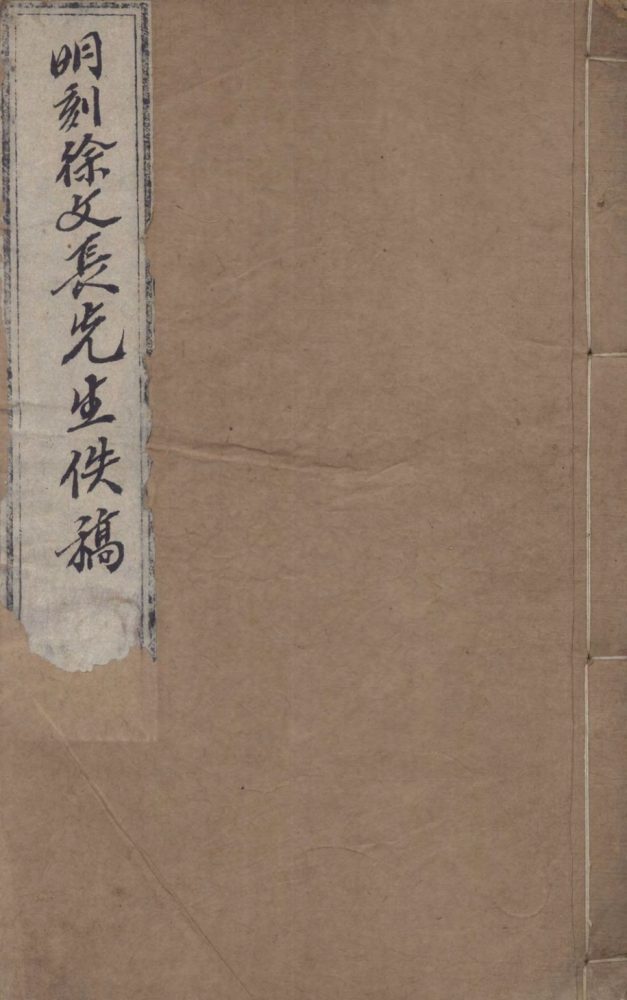 明刻徐文長先生佚稿